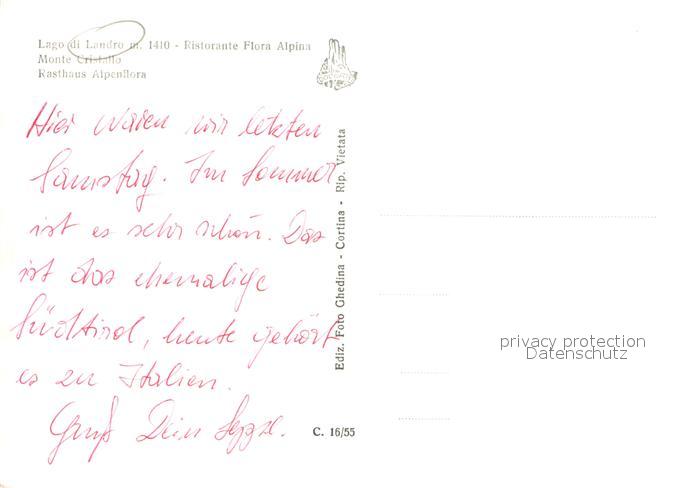 Lago di Landro m. 1410 - Ristorante Flora Alpina
Monte Cristallo
Rasthaus Alpenflora
Hier waren wir letzten
Samstag. Im Sommer
ist es sehr schön. Das
ist das ehemalige
Südtirol, heute gehört
es zu Italien.
Gruß Dein
C. 16/55
Ediz. Foto Ghedina - Cortina - Rip. Vietata
privacy protection
Datenschutz